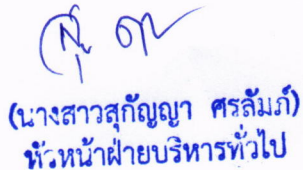 (นางสาวสุกัญญา ศรลัมภ์)
หัวหน้าฝ่ายบริหารทั่วไป